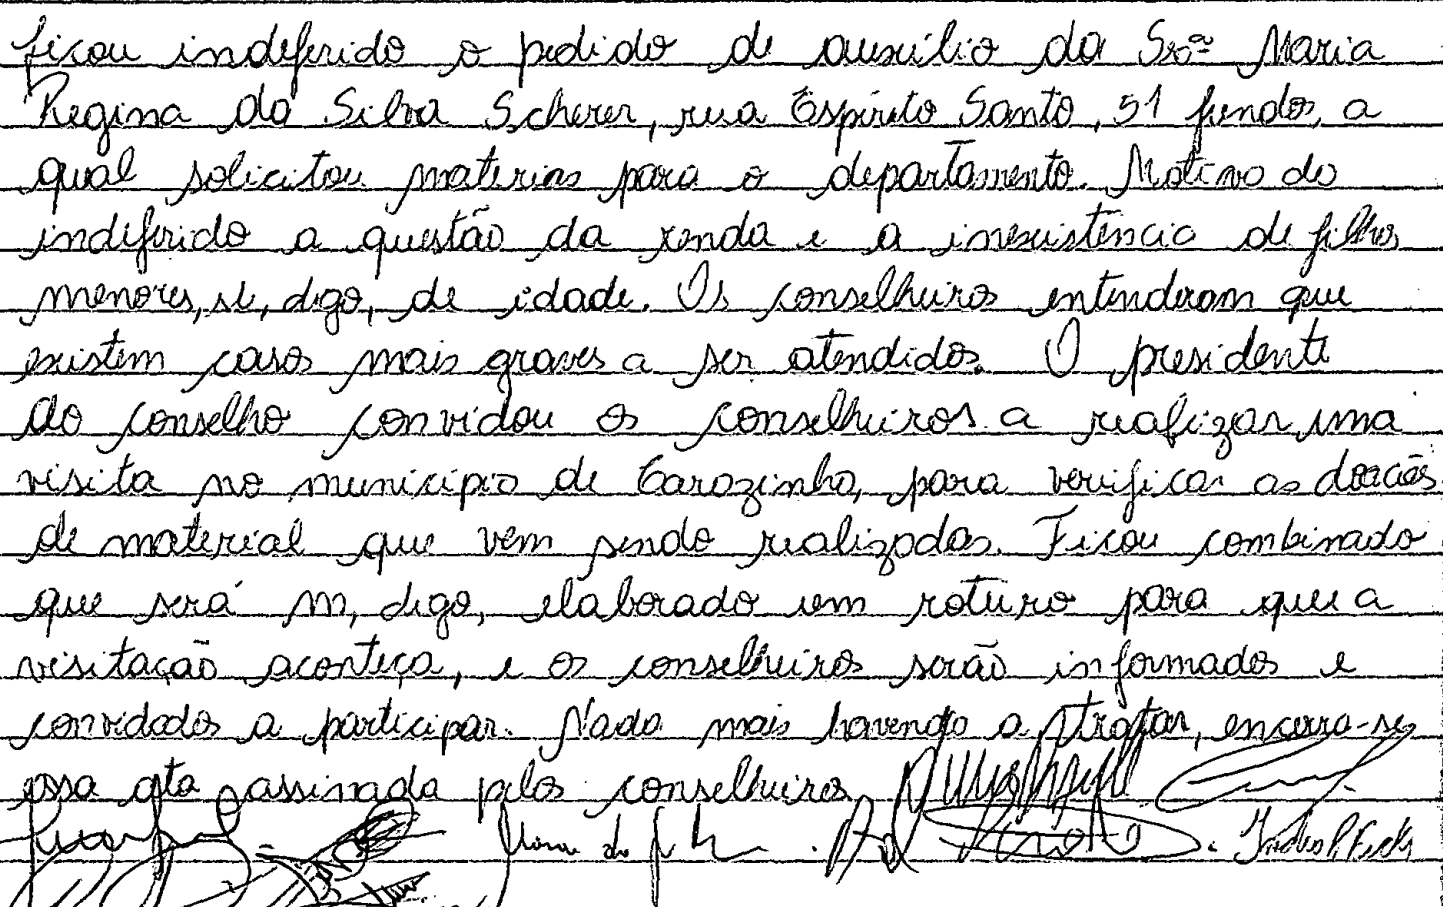 ficou indeferido o pedido de auxílio da Srª Maria
Regina da Silva Scherer, rua Espírito Santo, 51 fundos, a
qual solicitou materias para o departamento. Motivo do
indeferido a questão da renda e a inexistência de filhos
menores, se, digo, de idade. Os conselheiros entenderam que
existem casos mais graves a ser atendidos. O presidente
do conselho convidou os conselheiros a realizar uma
visita no município de Carazinho, para verificar as doações
de material que vem sendo realizadas. Ficou combinado
que será m, digo, elaborado um roturo para que a
visitação aconteça, e os conselheiros serão informados e
convidados a participar. Nada mais havendo a tratar, encerra-se
essa ata assinada pelos conselheiros